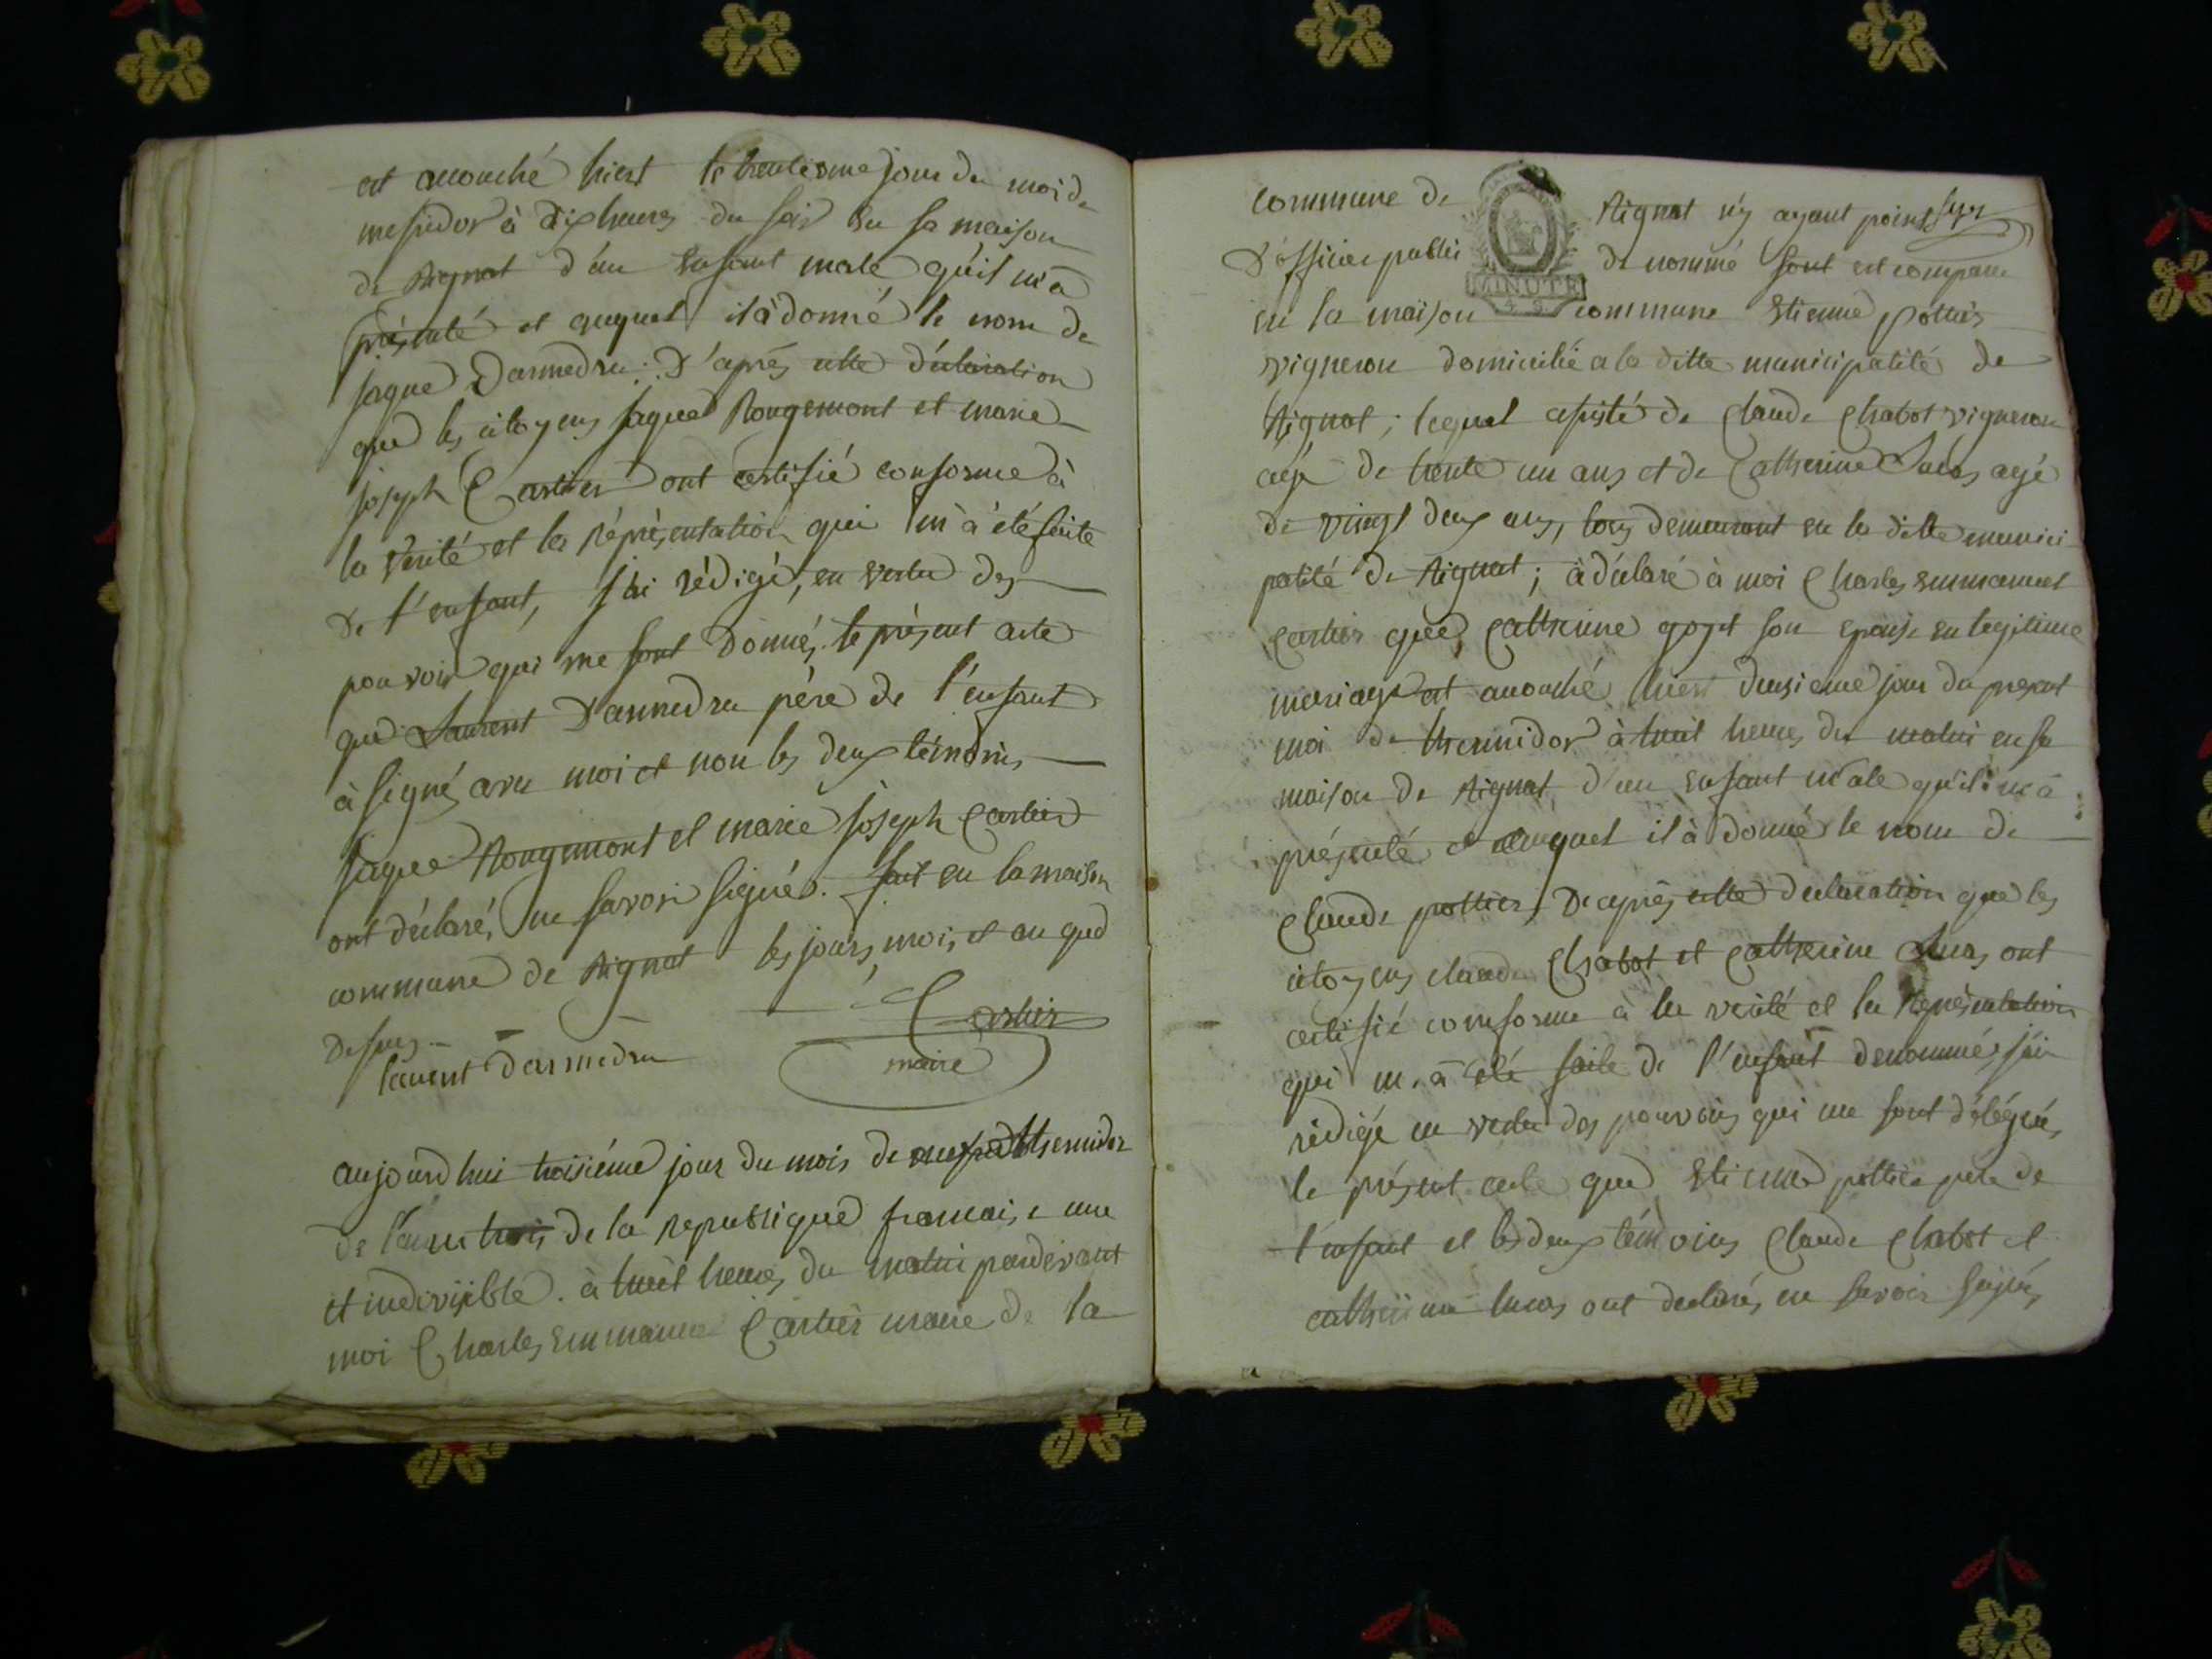 est acouché hiert le trentieme jour du moi de
mesidor à dix heures du soir en sa maison
de Rignat d'un enfant male qu'il m'a
présenté et auquel il à donné le nom de
jaque Darmedru. D'après cette déclaration
que les citoyens jaque Rougemont et marie
joseph Cartier ont certifié conforme à
la vérité et la réprésentation qui m'à été faite
de l'enfant, j'ai rédigé, en vertu des
pouvoir qui me sont donnés, le présent acte
que Laurent Darmedru père de l'enfant
à signé avec moi et non les deux témoins
jaque Rougemont et marie joseph Cartier
ont déclaré, ne savoir signér. fait en la maison
commune de Rignat les jours, mois, et an que
desus
laurent darmedru
Cartier
maire
aujourdhui troisiéme jour du mois de thermidor
de l'anne trois de la republique francaise une
et indivisible. à huit heures du matin pardevant
moi Charles Emmanuel Cartier maire de la
commune de Rignat n'y ayant point
D'officier public de nommé est comparu
MINUTE
en la maison commune Etienne pottier
vigneron domicilié a la ditte municipalité de
Rignat; lequel asisté de Claude Chabot vigneron
agé de trente un ans et de Catherine Lucas agé
de vingt deux ans, tous demeurant en la ditte munici
palité de Rignat; à déclaré à moi Charles emmanuel
Cartier que, Catherine goyet son epouse en legitime
mariage est acouché hiert deusieme jour du present
moi de thermidor à huit heures du matin en sa
maison de Rignat, d'un enfant male qu'il m'à
présenté et auquel il à donné le nom de
Claude pottier, D'après cette declaration que les
citoyens claude Chabot et Catherine Lucas ont
certifié comforme à la verité et la Représentation
qui m'a été faite de l'enfant denommé j'ai
rédigé en vertu des pouvoirs qui me sont délégués,
le présent acte que Etienne pottier pere de
l'enfant et les deux témoins Claude Chabot et
catherine lucas ont declarés, ne savoir signés,